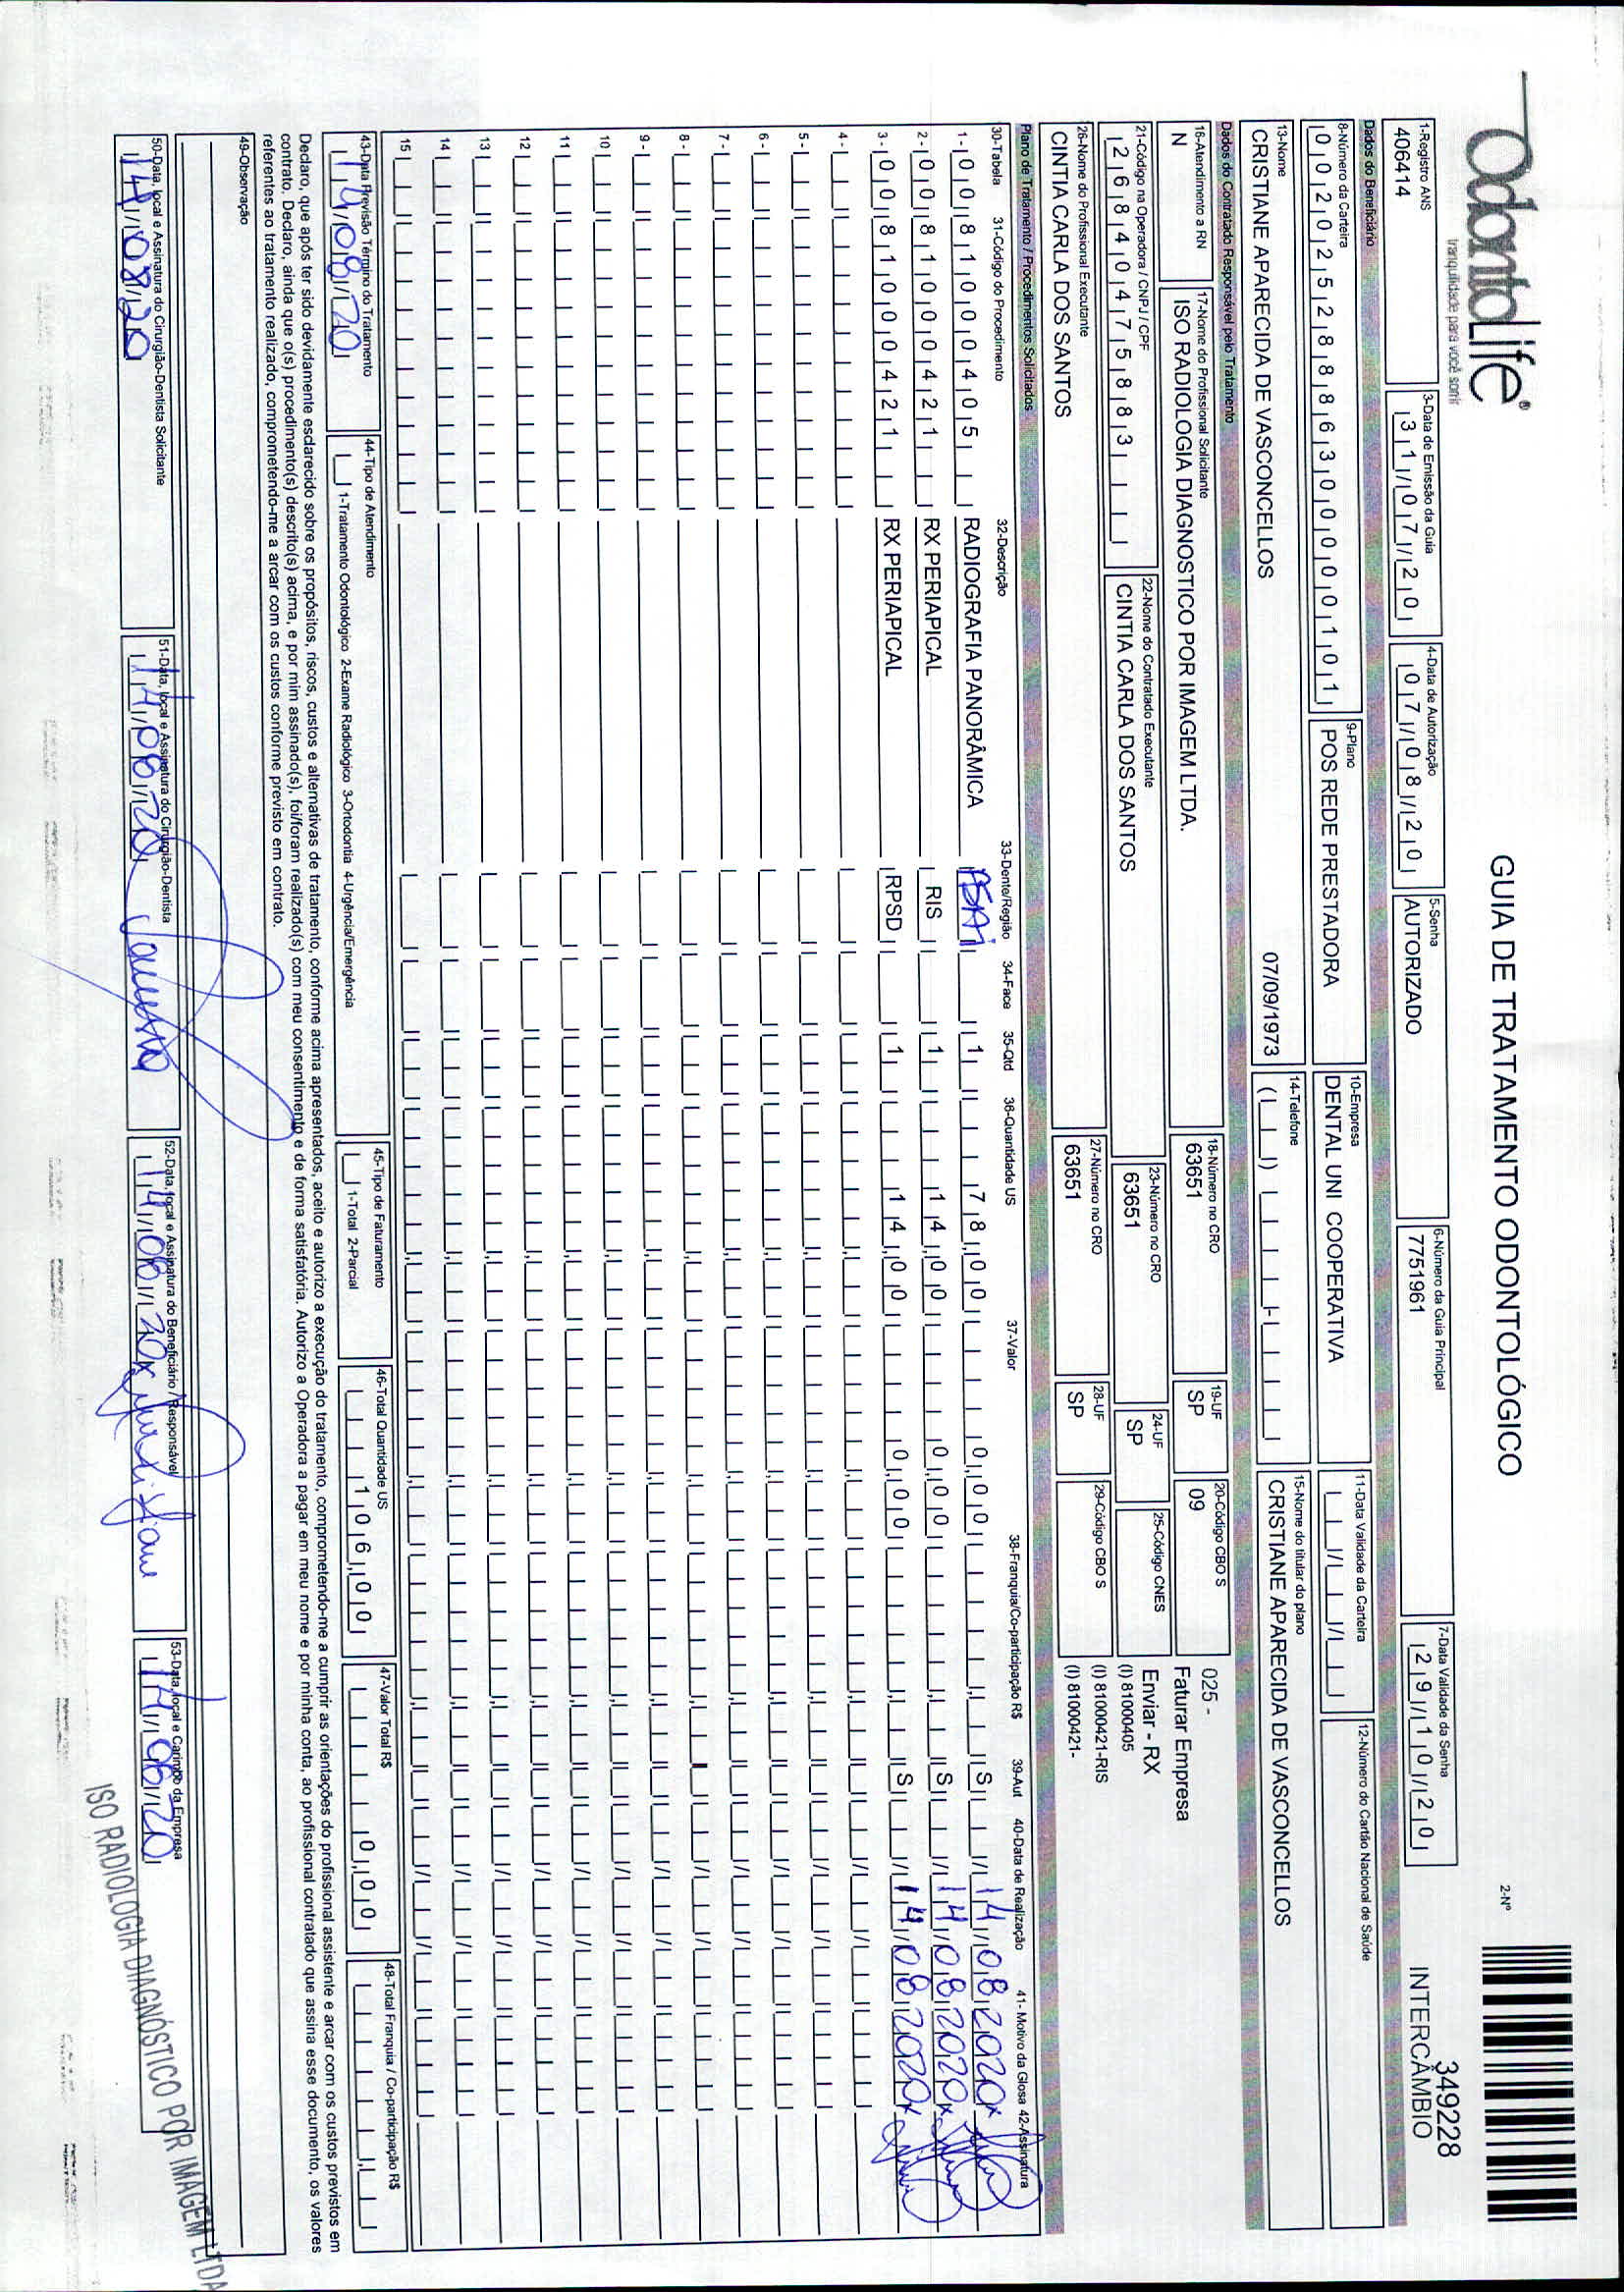 OdontoLife®
tranquilidade para você sorrir
GUIA DE TRATAMENTO ODONTOLÓGICO
2-Nº
349228
INTERCÂMBIO
1-Registro ANS
406414
3-Data de Emissão da Guia
31/07/20
4-Data de Autorização
07/08/20
5-Senha
AUTORIZADO
6-Número da Guia Principal
7751961
7-Data Validade da Senha
29/10/20
Dados do Beneficiário
8-Número da Carteira
0020252886300000101
9-Plano
POS REDE PRESTADORA
10-Empresa
DENTAL UNI COOPERATIVA
11-Data Validade da Carteira
12-Número do Cartão Nacional de Saúde
13-Nome
CRISTIANE APARECIDA DE VASCONCELLOS
07/09/1973
14-Telefone
15-Nome do titular do plano
CRISTIANE APARECIDA DE VASCONCELLOS
Dados do Contratado Responsável pelo Tratamento
16-Atendimento a RN
N
17-Nome do Profissional Solicitante
ISO RADIOLOGIA DIAGNOSTICO POR IMAGEM LTDA.
18-Número no CRO
63651
19-UF
SP
20-Código CBO S
09
025 -
Faturar Empresa
Enviar - RX
(I) 81000405
(I) 81000421-RIS
(I) 81000421-
21-Código na Operadora / CNPJ / CPF
26840475883
22-Nome do Contratado Executante
CINTIA CARLA DOS SANTOS
23-Número no CRO
63651
24-UF
SP
25-Código CNES
26-Nome do Profissional Executante
CINTIA CARLA DOS SANTOS
27-Número no CRO
63651
28-UF
SP
29-Código CBO S
Plano de Tratamento / Procedimentos Solicitados
30-Tabela 31-Código do Procedimento 32-Descrição 33-Dente/Região 34-Face 35-Qtd 36-Quantidade US 37-Valor 38-Franquia/Co-participação R$ 39-Aut 40-Data de Realização 41- Motivo da Glosa 42-Assinatura
1- 00 81000405 RADIOGRAFIA PANORÂMICA 1 78,00 0,00 S 14/08/2020
2- 00 81000421 RX PERIAPICAL RIS 1 14,00 0,00 S 14/08/2020
3- 00 81000421 RX PERIAPICAL RPSD 1 14,00 0,00 S 14/08/2020
4-
5-
6-
7-
8-
9-
10
11
12
13
14
15
43-Data Previsão Término do Tratamento
14/08/20
44-Tipo de Atendimento
1-Tratamento Odontológico 2-Exame Radiológico 3-Ortodontia 4-Urgência/Emergência
45-Tipo de Faturamento
1-Total 2-Parcial
46-Total Quantidade US
106,00
47-Valor Total R$
0,00
48-Total Franquia / Co-participação R$
Declaro, que após ter sido devidamente esclarecido sobre os propósitos, riscos, custos e alternativas de tratamento, conforme acima apresentados, aceito e autorizo a execução do tratamento, comprometendo-me a cumprir as orientações do profissional assistente e arcar com os custos previstos em
contrato. Declaro, ainda que o(s) procedimento(s) descrito(s) acima, e por mim assinado(s), foi/foram realizado(s) com meu consentimento e de forma satisfatória. Autorizo a Operadora a pagar em meu nome e por minha conta, ao profissional contratado que assina esse documento, os valores
referentes ao tratamento realizado, comprometendo-me a arcar com os custos conforme previsto em contrato.
49-Observação
50-Data, local e Assinatura do Cirurgião-Dentista Solicitante
14/08/20
51-Data, local e Assinatura do Cirurgião-Dentista
14/08/20
52-Data, local e Assinatura do Beneficiário / Responsável
14/08/20
53-Data, local e Carimbo da Empresa
14/08/20
ISO RADIOLOGIA DIAGNÓSTICO POR IMAGEM LTDA